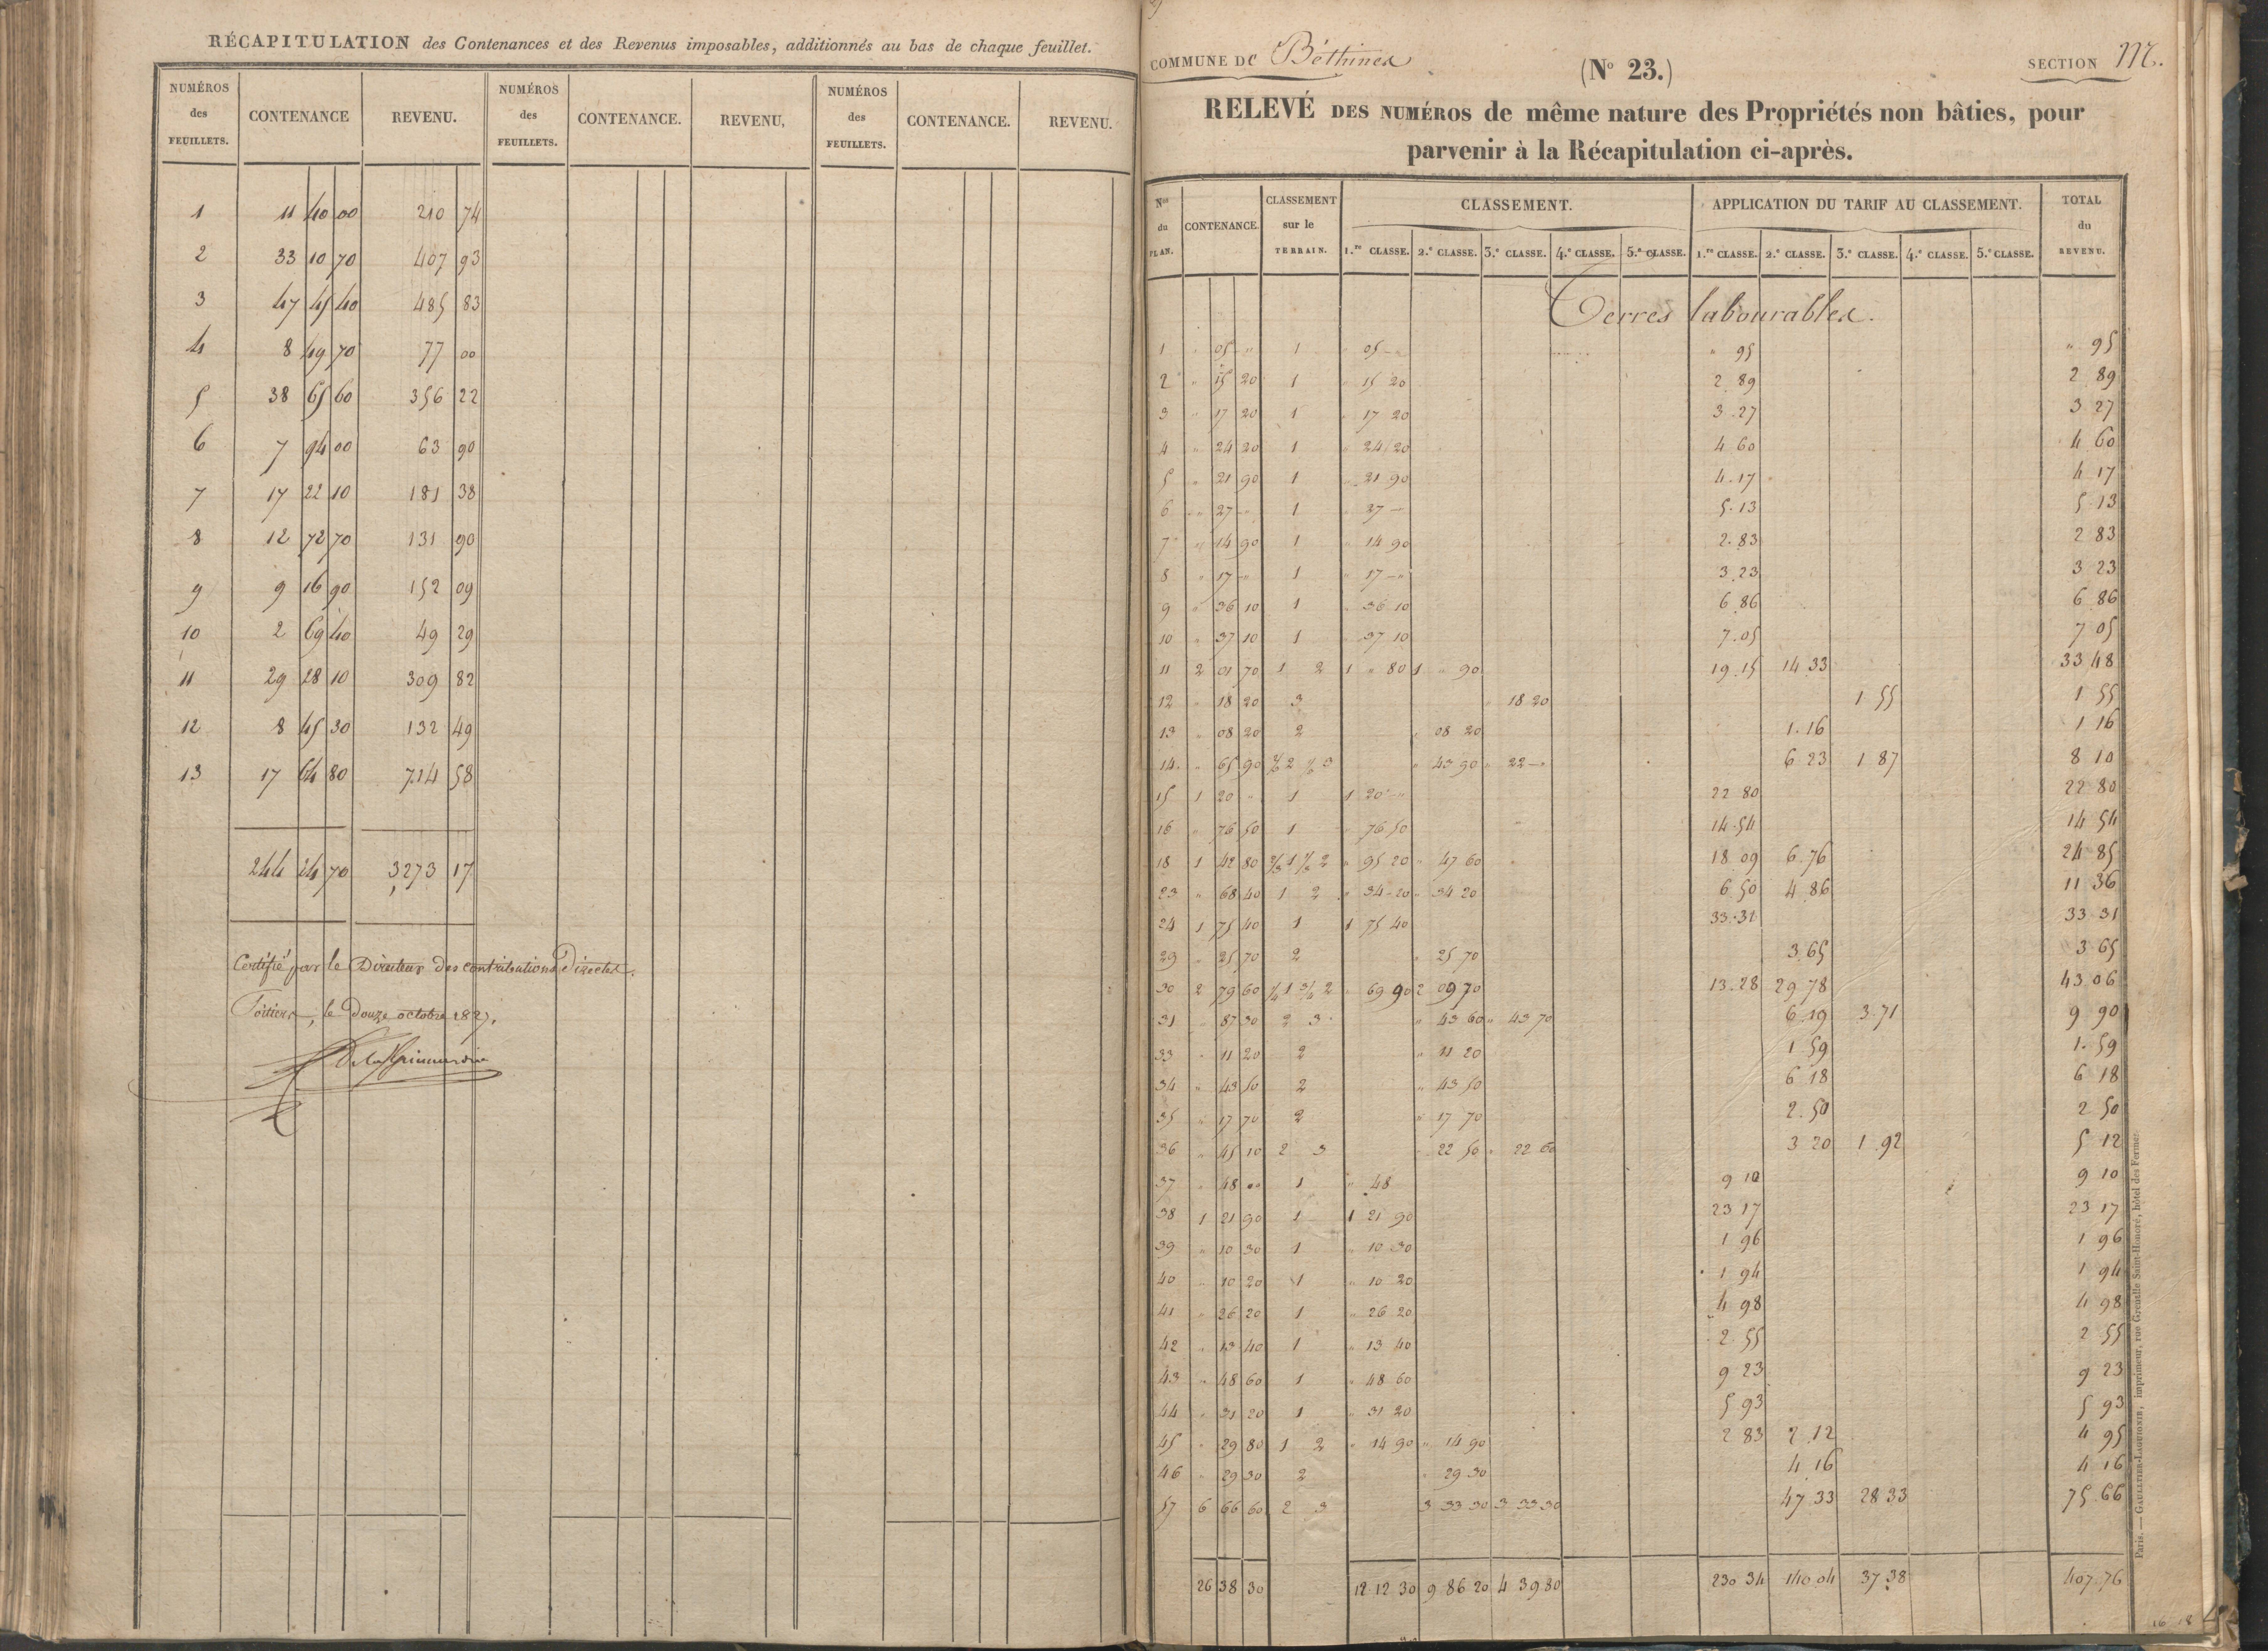 RÉCAPITULATION des Contenances et des Revenus imposables, additionnés au bas de chaque feuillet.
NUMÉROS des FEUILLETS. CONTENANCE REVENU. NUMÉROS des FEUILLETS. CONTENANCE. REVENU, NUMÉROS des FEUILLETS. CONTENANCE. REVENU.
1 11 40 00 210 74
2 33 10 70 407 93
3 47 45 40 485 83
4 8 49 70 77 00
5 38 65 60 356 22
6 7 94 00 63 90
7 17 22 10 181 38
8 12 72 70 131 90
9 9 16 90 152 09
10 2 69 40 49 29
11 29 28 10 309 82
12 8 45 30 132 49
13 17 64 80 714 58
244 24 70 3273 17
Certifié par le Directeur des contributions Directes.
Poitiers, le douze octobre 1827.
COMMUNE DE Béthines
(No 23.)
SECTION M.
RELEVÉ DES NUMÉROS de même nature des Propriétés non bâties, pour
parvenir à la Récapitulation ci-après.
Nos du PLAN. CONTENANCE. CLASSEMENT sur le TERRAIN. CLASSEMENT. APPLICATION DU TARIF AU CLASSEMENT. TOTAL du REVENU.
1.re CLASSE. 2.e CLASSE. 3.e CLASSE. 4.e CLASSE. 5.e CLASSE. 1.re CLASSE. 2.e CLASSE. 3.e CLASSE. 4.e CLASSE. 5.e CLASSE.
Terres labourables.
1 " 05 " 1 " 05 " " 95 " 95
2 " 15 20 1 " 15 20 2 89 2 89
3 " 17 20 1 " 17 20 3 27 3 27
4 " 24 20 1 " 24 20 4 60 4 60
5 " 21 90 1 " 21 90 4 17 4 17
6 " 27 " 1 " 27 " 5 13 5 13
7 " 14 90 1 " 14 90 2 83 2 83
8 " 17 " 1 " 17 " 3 23 3 23
9 " 36 10 1 " 36 10 6 86 6 86
10 " 37 10 1 " 37 10 7 05 7 05
11 2 01 70 1 2 1 " 80 1 " 90 19 15 14 33 33 48
12 " 18 20 3 " 18 20 1 55 1 55
13 " 08 20 2 " 08 20 1 16 1 16
14 " 65 90 2/3 2 1/3 3 " 43 90 " 22 " 6 23 1 87 8 10
15 1 20 " 1 1 20 " 22 80 22 80
16 " 76 50 1 " 76 50 14 54 14 54
18 1 42 80 2/3 1 1/3 2 " 95 20 " 47 60 18 09 6 76 24 85
23 " 68 40 1 2 " 34 20 " 34 20 6 50 4 86 11 36
24 1 75 40 1 1 75 40 33 31 33 31
29 " 25 70 2 " 25 70 3 65 3 65
30 2 79 60 1/4 1 3/4 2 " 69 90 2 09 70 13 28 29 78 43 06
31 " 87 30 2 3 " 43 60 " 43 70 6 19 3 71 9 90
33 " 11 20 2 " 11 20 1 59 1 59
34 " 43 50 2 " 43 50 6 18 6 18
35 " 17 70 2 " 17 70 2 50 2 50
36 " 45 10 2 3 " 22 50 " 22 60 3 20 1 92 5 12
37 " 48 " 1 " 48 9 10 9 10
38 1 21 90 1 1 21 90 23 17 23 17
39 " 10 30 1 " 10 30 1 96 1 96
40 " 10 20 1 " 10 20 1 94 1 94
41 " 26 20 1 " 26 20 4 98 4 98
42 " 13 40 1 " 13 40 2 55 2 55
43 " 48 60 1 " 48 60 9 23 9 23
44 " 31 20 1 " 31 20 5 93 5 93
45 " 29 80 1 2 " 14 90 " 14 90 2 83 2 12 4 95
46 " 29 30 2 " 29 30 4 16 4 16
57 6 66 60 2 3 3 33 30 3 33 30 47 33 28 33 75 66
26 38 30 12 12 30 9 86 20 4 39 80 230 34 140 04 37 38 407 76
Paris. — GAULTIER-LAGUIONIE, imprimeur, rue Grenelle Saint-Honoré, hôtel des Fermes.